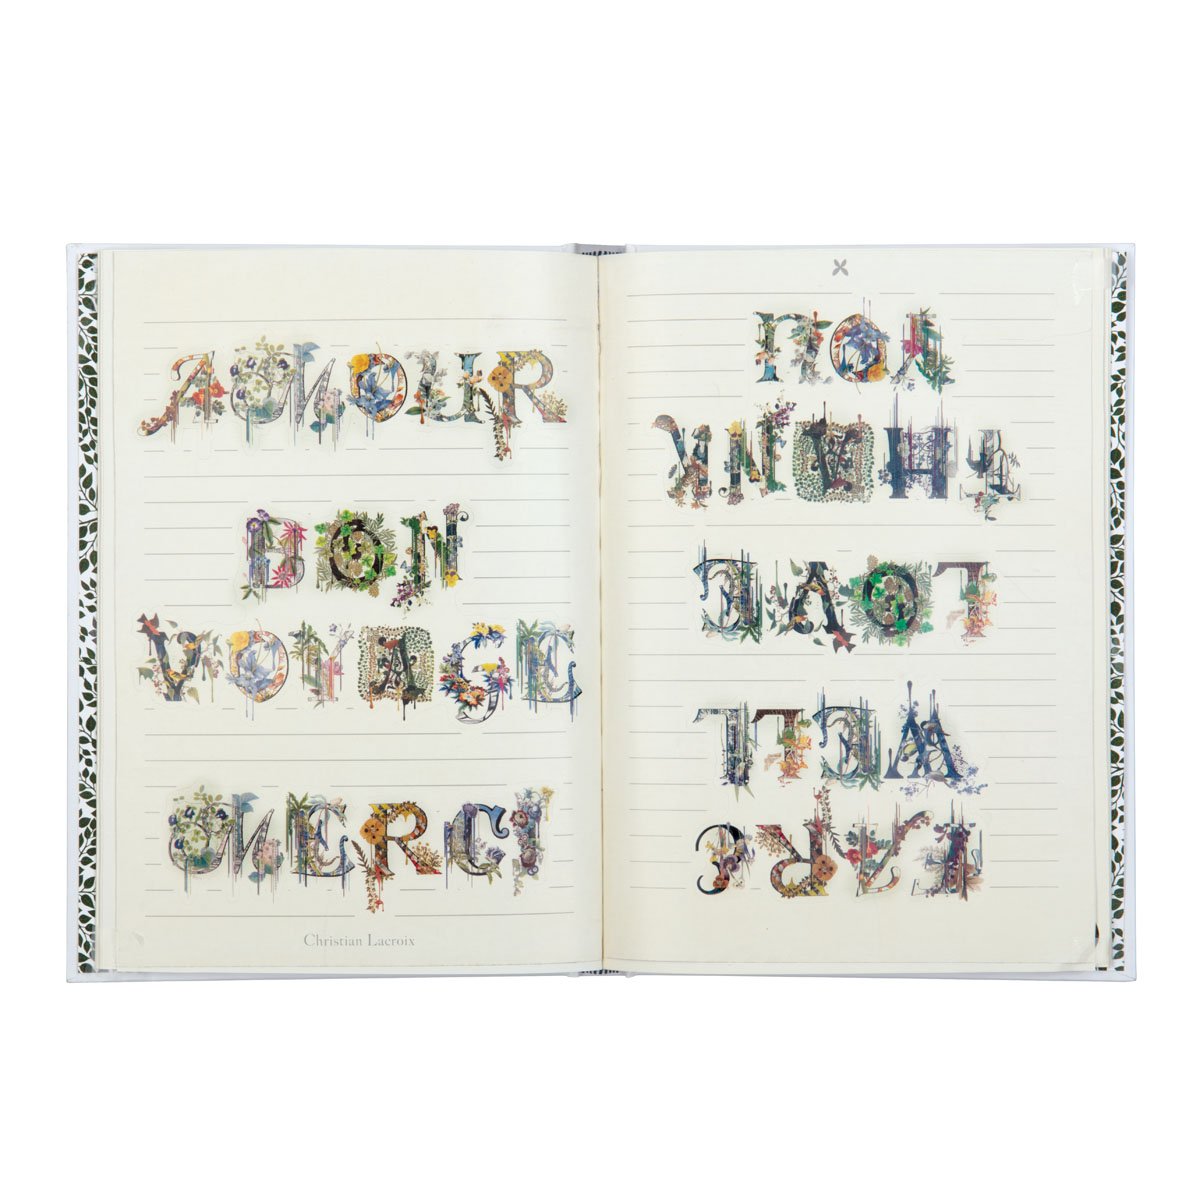 AMOUR
BON
VOYAGE
MERCI
Christian Lacroix
FARE
WELL
LOVE
THANK
YOU